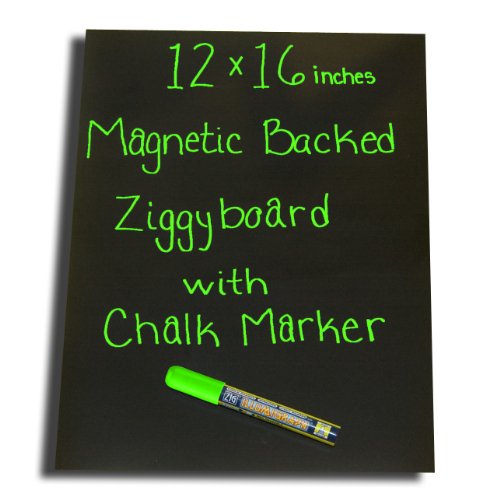 12 x 16 inches
Magnetic Backed
Ziggyboard
with
Chalk Marker
ZIG